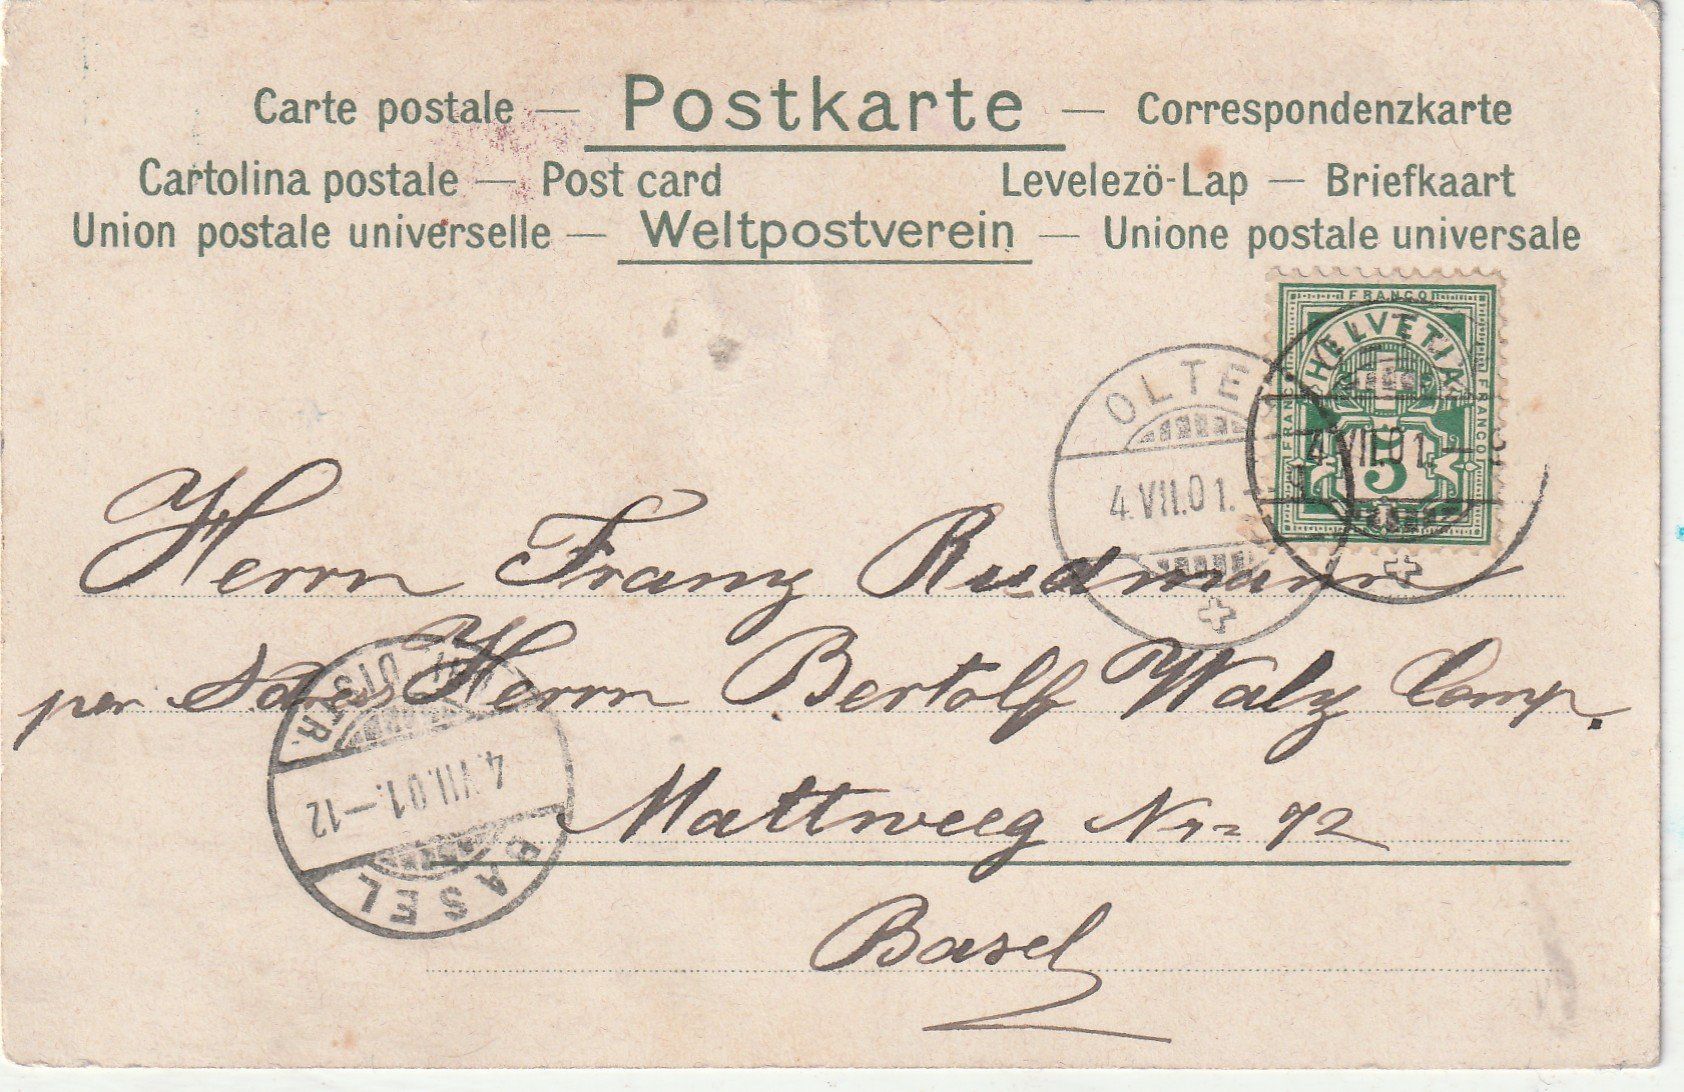 Carte postale — Postkarte — Correspondenzkarte
Cartolina postale — Post card Levelezö-Lap — Briefkaart
Union postale universelle — Weltpostverein — Unione postale universale
FRANCO
HELVETIA
FRANCO FRANCO
5
OLTEN
4.VII.01.
4.VII.01.
Herrn Franz Rudmann
per Adres Herrn Bertolf Walz Comp.
Mattweeg Nr= 72
Basel
BASEL
4.VII.01.–12